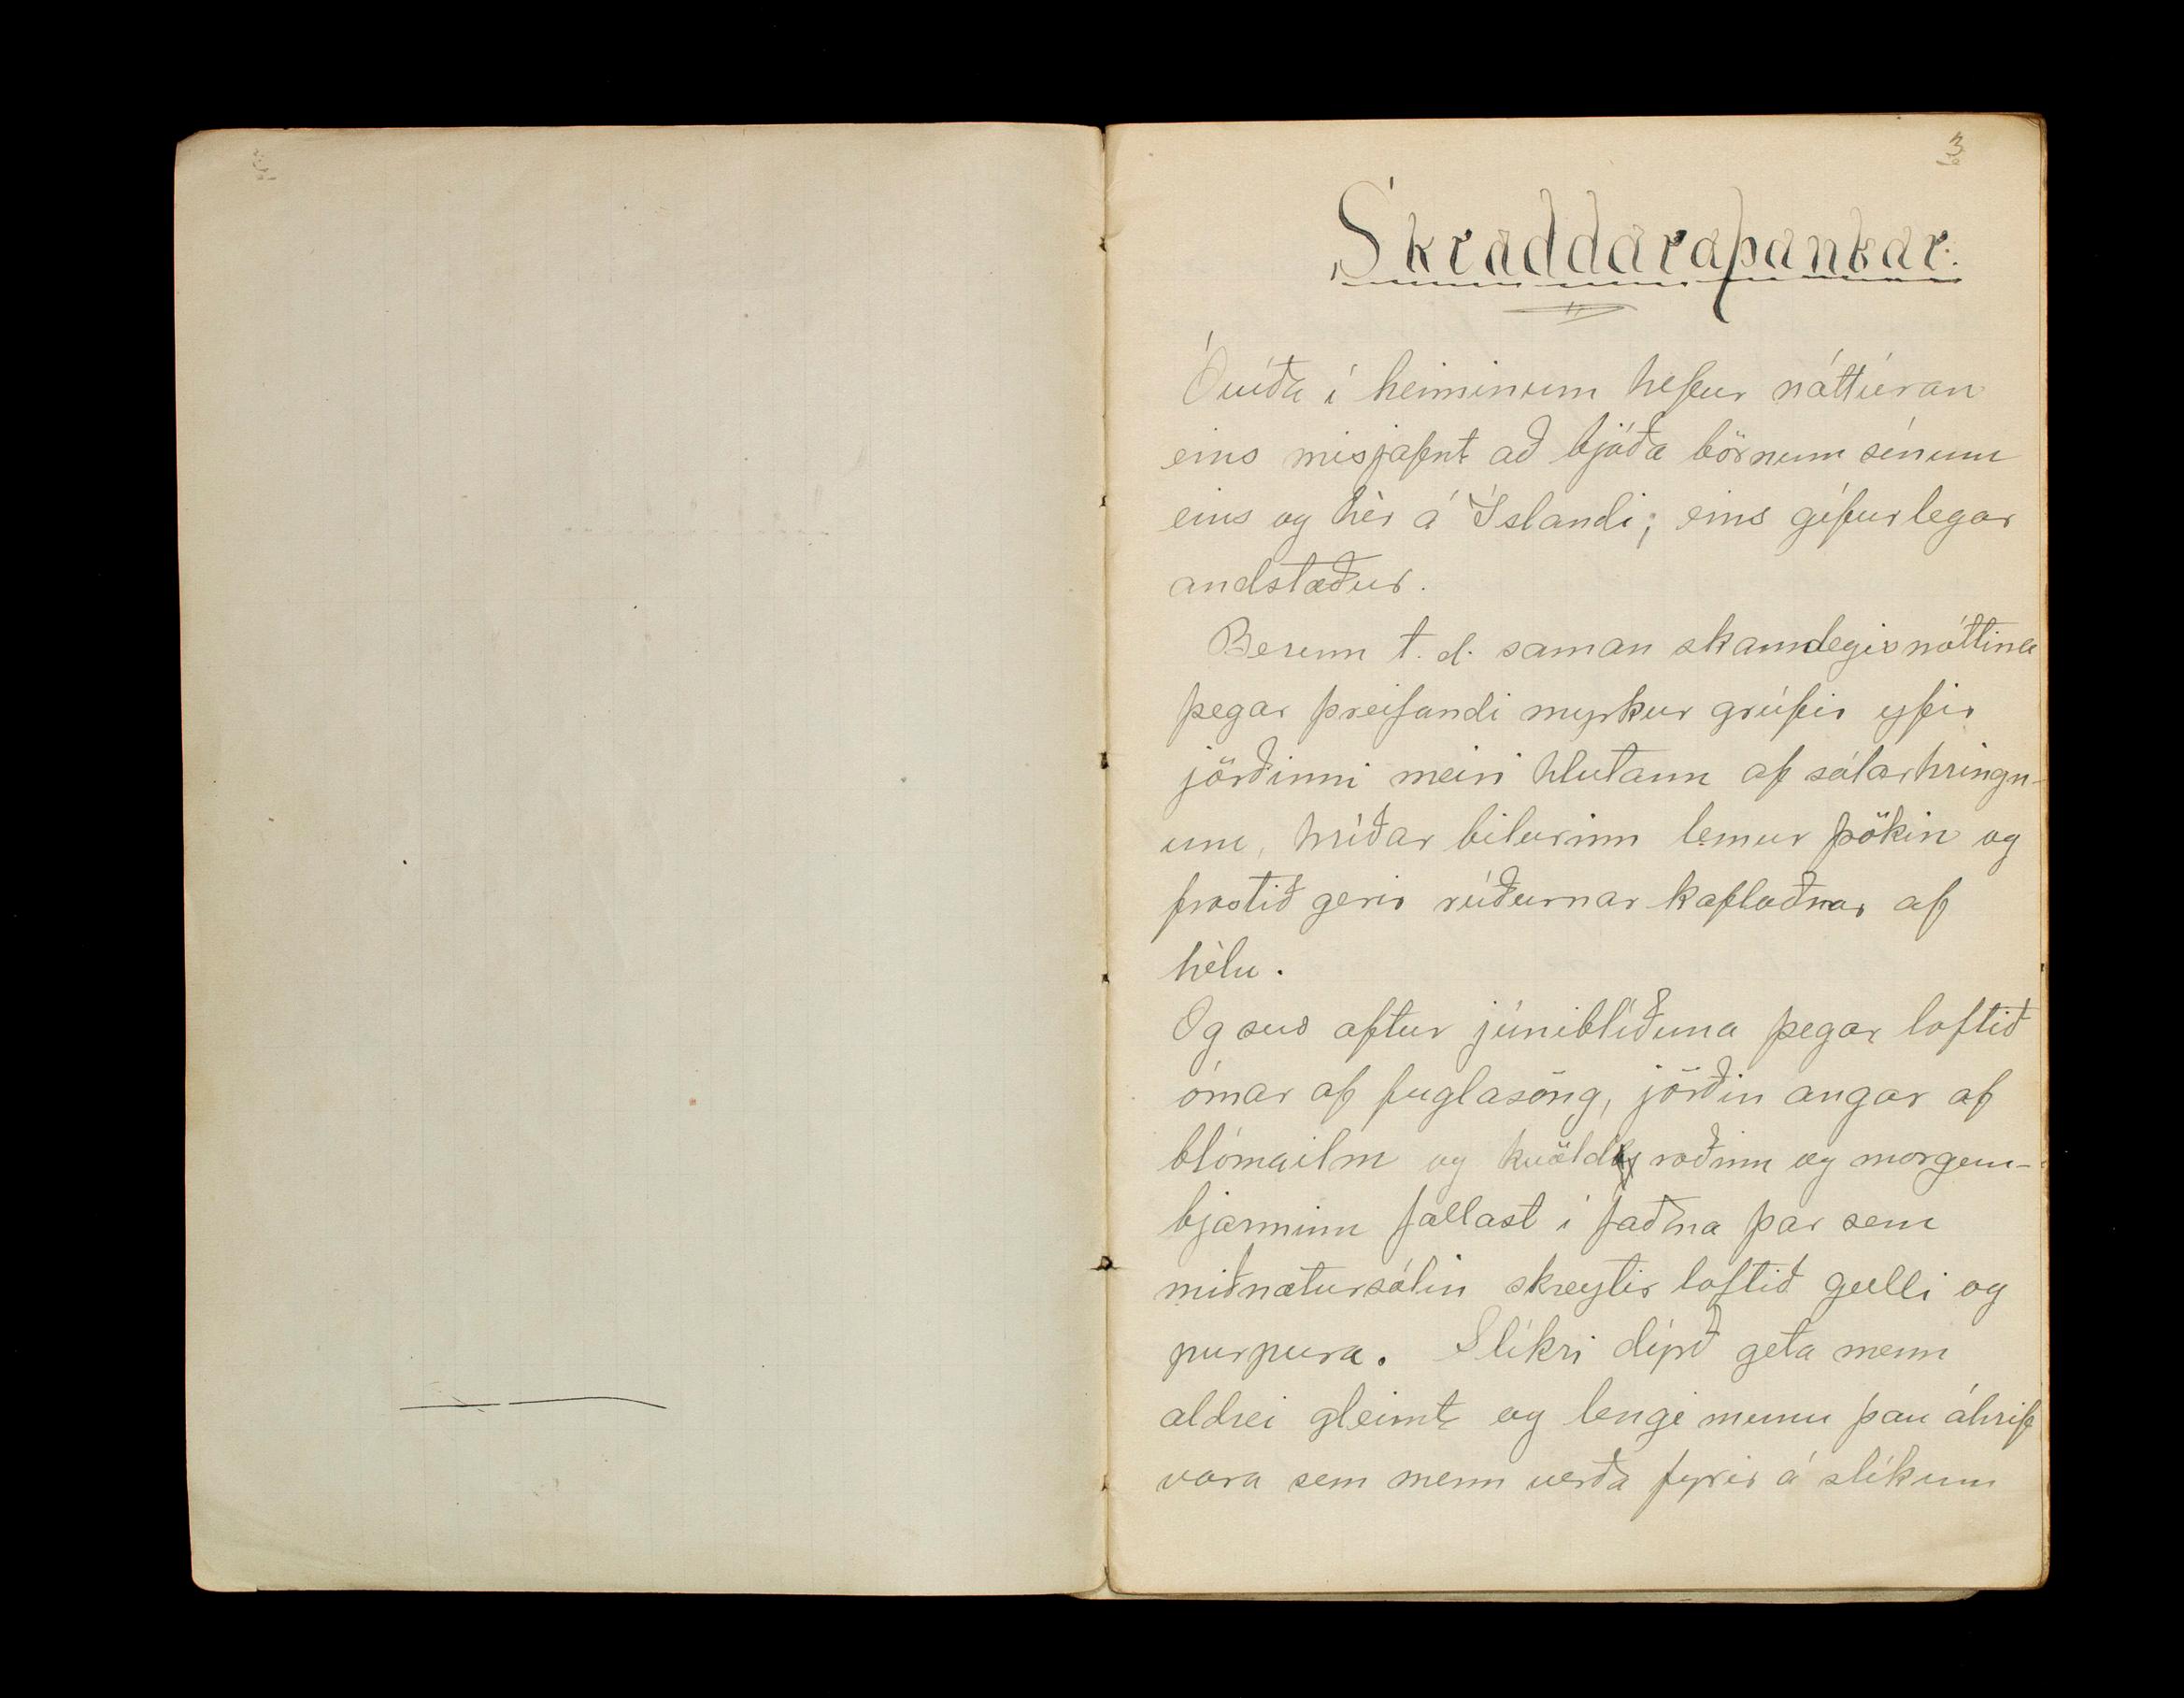 3
Skraddaraþankar.
Óvíða í heiminum hefur náttúran
eins misjafnt að bjóða börnum sínum
eins og hèr á Íslandi; eins gífurlegar
andstæður.
Berum t. d. saman skamdegisnóttina
þegar þreifandi myrkur grúfir yfir
jörðinni meiri hlutann af sólarhringn-
um, hríðar bilurinn lemur þökin og
frostið gerir rúðurnar kafloðnar af
hèlu.
Og svo aftur júniblíðuna þegar loftið
ómar af fuglasöng, jörðin angar af
blómailm og kvöld roðinn og morgun-
bjarminn fallast í faðma þar sem
miðnætursólin skreytir loftið gulli og
purpura. Slíkri dípð geta menn
aldrei gleimt og lengi munu þau áhrif
vara sem menn verða fyrir á slíkum